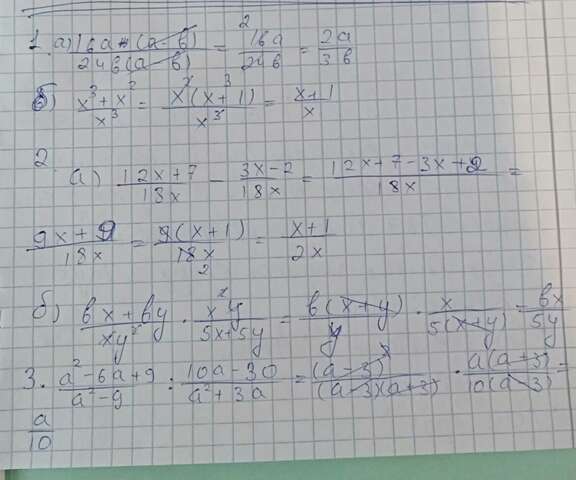 1. а) 16a·(a-b)/24b(a-b) = 16a/24b = 2a/3b
б) x³+x²/x³ = x²(x+1)/x³ = x+1/x
2. а) 12x+7/18x - 3x-2/18x = 12x+7-3x+2/18x =
9x+9/18x = 9(x+1)/18x = x+1/2x
б) bx+by/xy² · x²y/5x+5y = b(x+y)/y · x/5(x+y) = bx/5y
3. a²-6a+9/a²-9 : 10a-30/a²+3a = (a-3)²/(a-3)(a+3) · a(a+3)/10(a-3) =
a/10